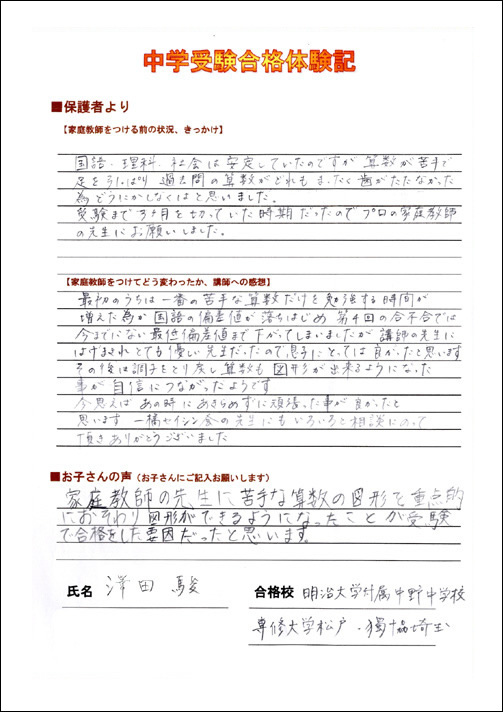 中学受験合格体験記
■保護者より
【家庭教師をつける前の状況、きっかけ】
国語、理科、社会は安定していたのですが算数が苦手で
足をひっぱり 過去問の算数がどれもまったく歯がたたなかった
為どうにかしなくはと思いました。
受験まで3ヶ月を切っていた時期だったのでプロの家庭教師
の先生にお願いしました。
【家庭教師をつけてどう変わったか、講師への感想】
最初のうちは一番の苦手な算数だけを勉強する時間が
増えた為か国語の偏差値が落ちはじめ 第4回の合不合では
今までにない最低偏差値まで下がってしまいましたが 講師の先生に
はげまされとても優しい先生だったので息子にとっては良かったと思います
その後は調子をとり戻し算数も図形が出来るようになった
事が自信につながったようです
今思えばあの時にあきらめずに頑張った事が良かったと
思います 一橋セイシン会の先生にもいろいろと相談にのって
頂きありがとうございました
■お子さんの声（お子さんにご記入お願いします）
家庭教師の先生に苦手な算数の図形を重点的
におそわり図形ができるようになったことが受験
で合格をした要因だったと思います。
氏名 澤田 駿
合格校 明治大学付属中野中学校
専修大学松戸・獨協埼玉